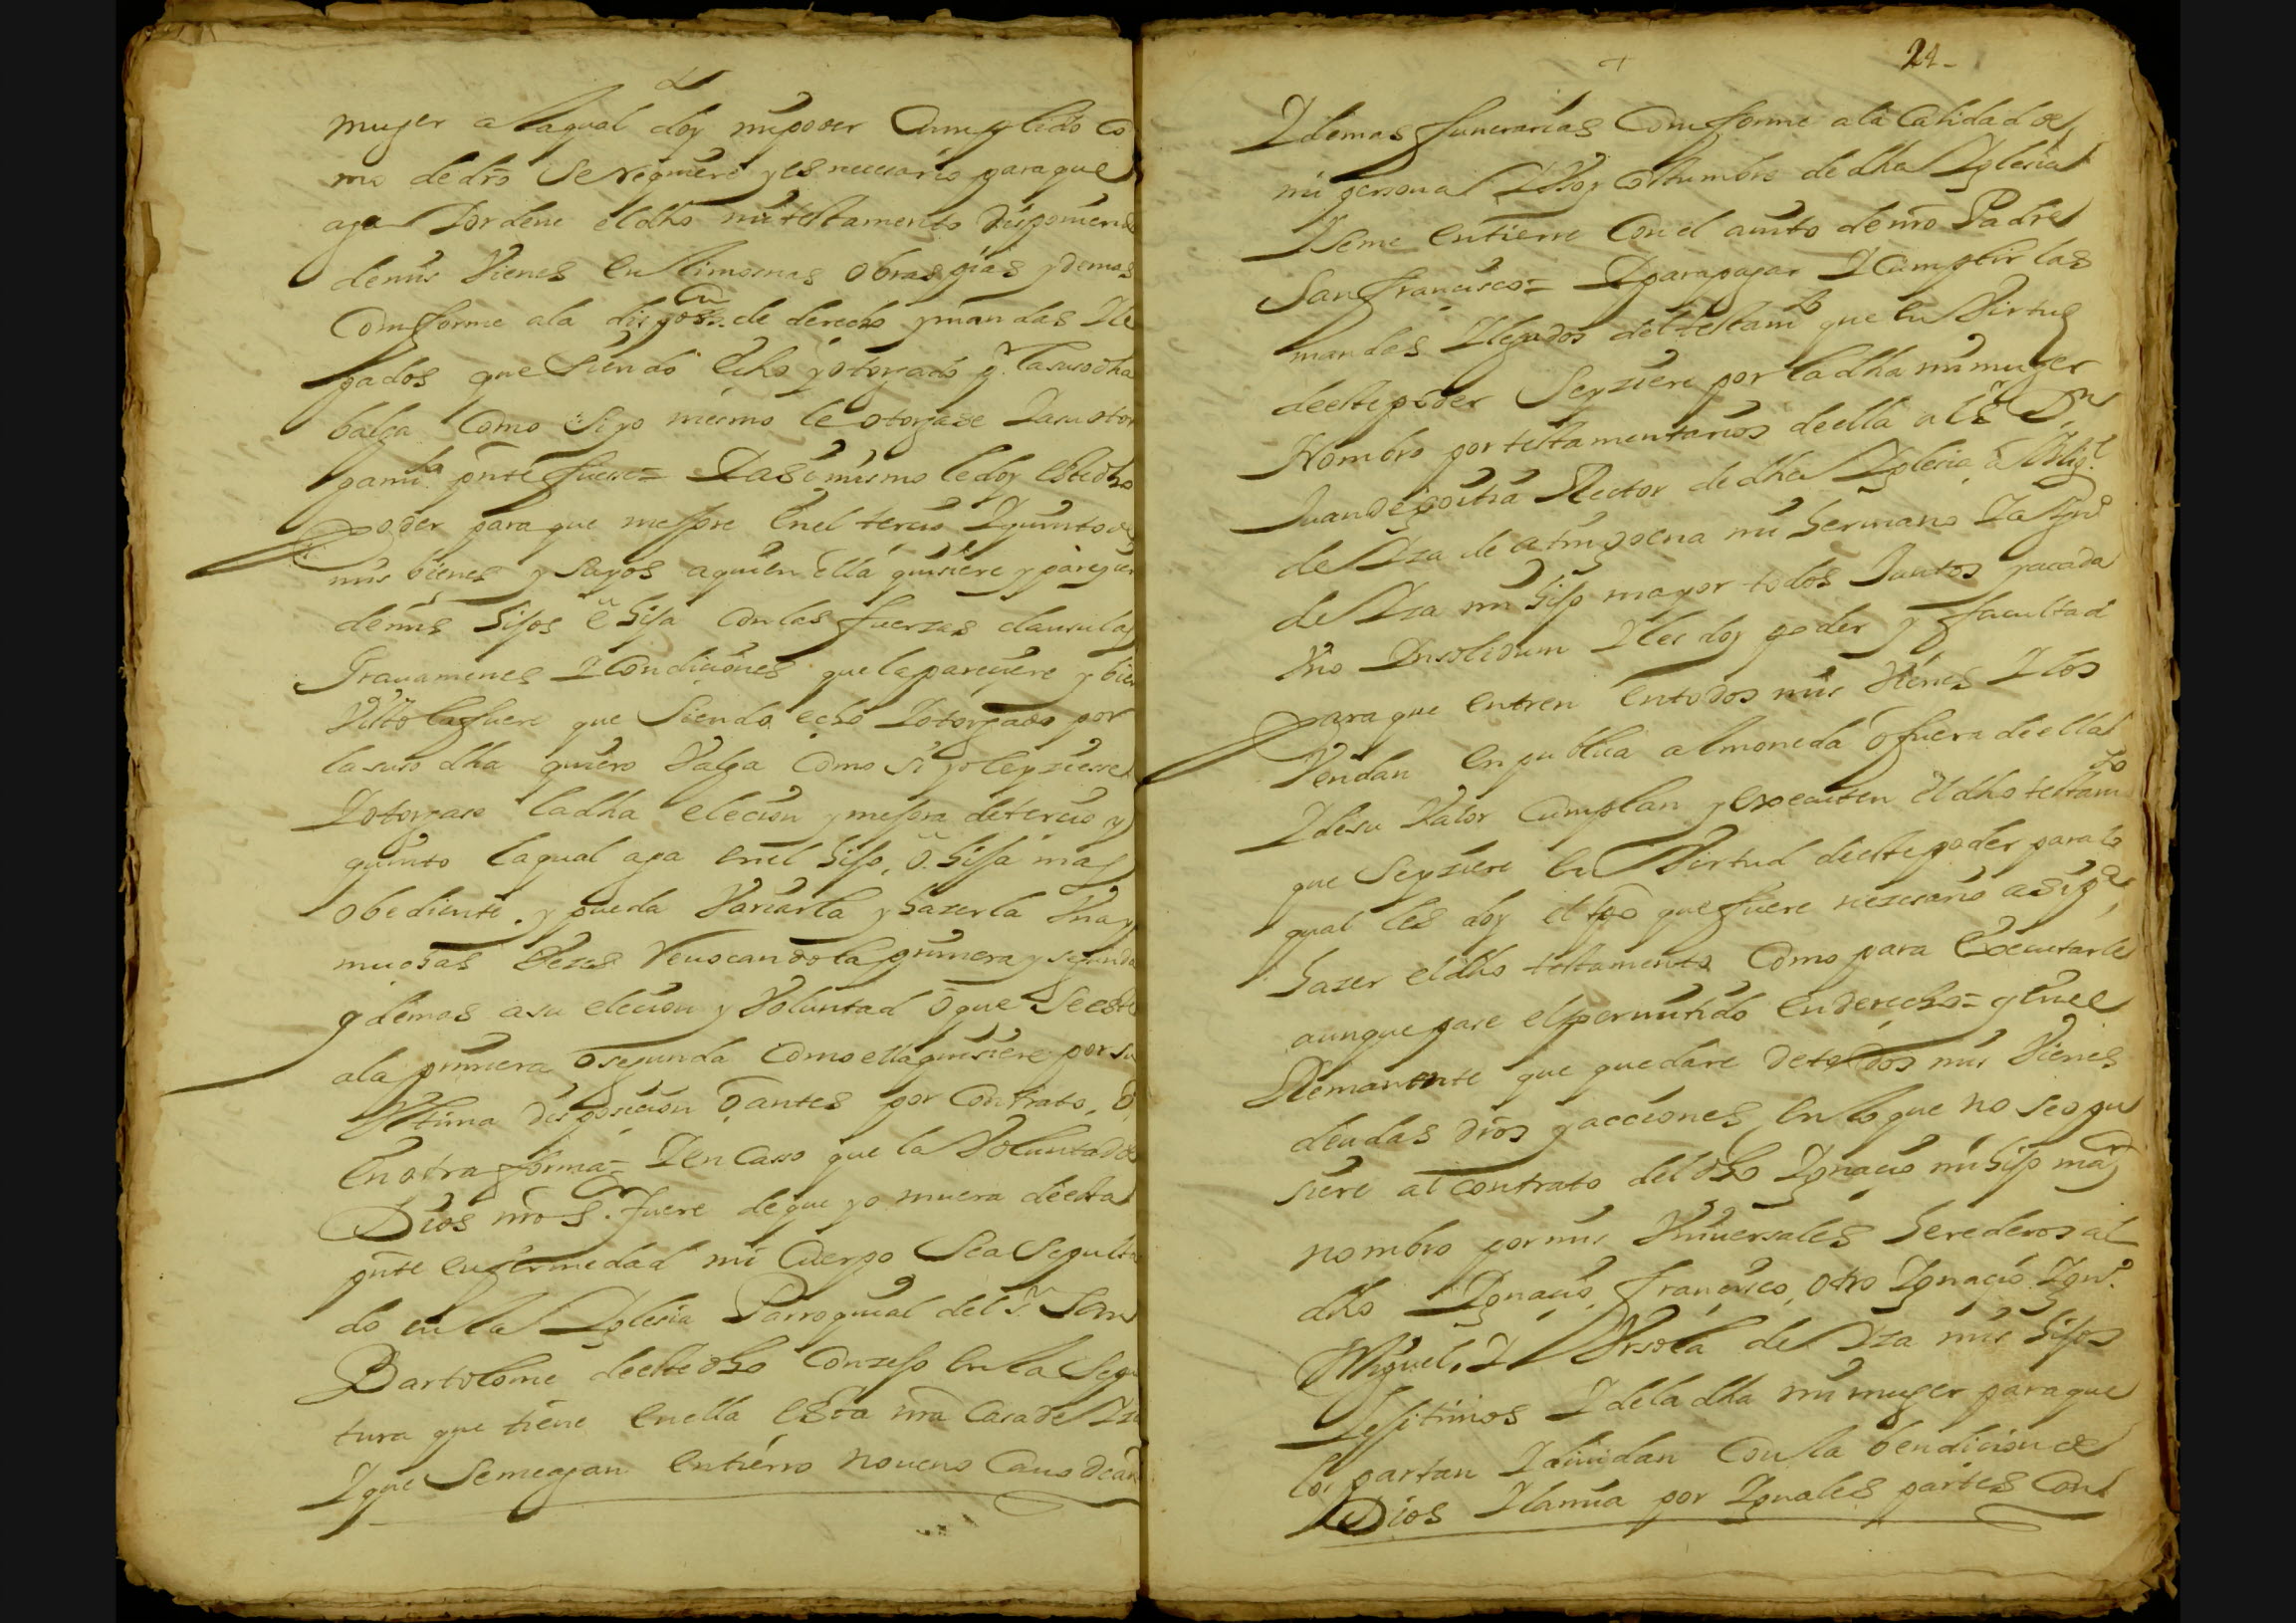 muger a la qual doy mi poder Cumplido co
mo de dro̅ Se requiere y es necesario para que
aga Y ordene el dho mi testamento disponiendo
de mis Vienes en limosnas obras pias y demas
Comforme a la dispos.on de derecho y mandas Y le
gados que Siendo echo y otorgado pr. la suso dha
balga Como Si yo mismo le otorgase Y a su otor
gami.to pn̅te fuese = Y asi mismo le doy este dho
Poder para que mejore en el tercio Y quinto de
mis bienes y suyos a quien ella quisiere y pareçiere
de mis hijos e hija con las fuerzas clausulas
Grauamenes Y Condiciones que la pareçiere y bien
Visto la fuere que Siendo echo Y otorgado por
la suso dha quiero Valga Como si yo le yziesse
Y otorgase la dha elecion y mejora de tercio y
quinto la qual aga en el hijo, o hija mas
obediente. y pueda Variarla y hazerla Vna y
muchas Vezes reuocando la primera y segunda
y demas a su elecion y Voluntad o que Se este
a la primera o segunda Como ella quisiere por su
Vltima disposicion o antes por Contrato, o
en otra forma = Y en Casso que la Voluntad de
Dios nro Sr. fuere de que yo muera de esta
pn̅te enfermedad mi Cuerpo Sea Sepulta
do en la Yglesia Parroquial del Sr. San
Bartolome de este dho Conzejo en la Sepu
tura que tiene en ella esta nra Casa de Yza
Y que Se me agan entierro noueno Cauo de año
24
Y demas funerarias Comforme a la Calidad de
mi persona Y Vso y Costumbre de dha Yglesia
Y se me entierre Con el auito de nro Padre
San francisco = Y para pagar Y Cumplir las
mandas Y legados del testam.to que en Virtud
de este poder Se yziere por la dha mi muger
Nombro por testamentarios de ella al Sr. Dn.
Juan de goitia Rector de dha Yglesia, a Mig.l
de Yza de mi hermano Y a Ygn.o
de Yza mi hijo mayor todos Juntos y a cada
Vno Ynsolidum Y les doy poder y facultad
Para que entren en todos mis Vienes Y los
Vendan en publica almoneda o fuera de ella
Y de su Valor Cumplan y executen el dho testam.to
que Se yziere en Virtud de este poder para lo
qual les doy el tpo que fuere nezesario asi pa.
hazer el dho testamento Como para executarle
aunque pase el permitido en derecho = y en el
Remanente que quedare de todos mis Vienes
deudas dros y acciones en lo que no se opu
siere al contrato del dho Ygnacio mi hijo mayor
nombro por mis Vniuersales herederos al
dho Ygnacio, francisco, otro Ygnacio Ygn.o
Miguel, Y Vrsola de Yza mis hijos
Lejitimos Y de la dha mi muger para que
los partan Y diuidan Con la bendicion de
Dios Y la mia por Yguales partes Con